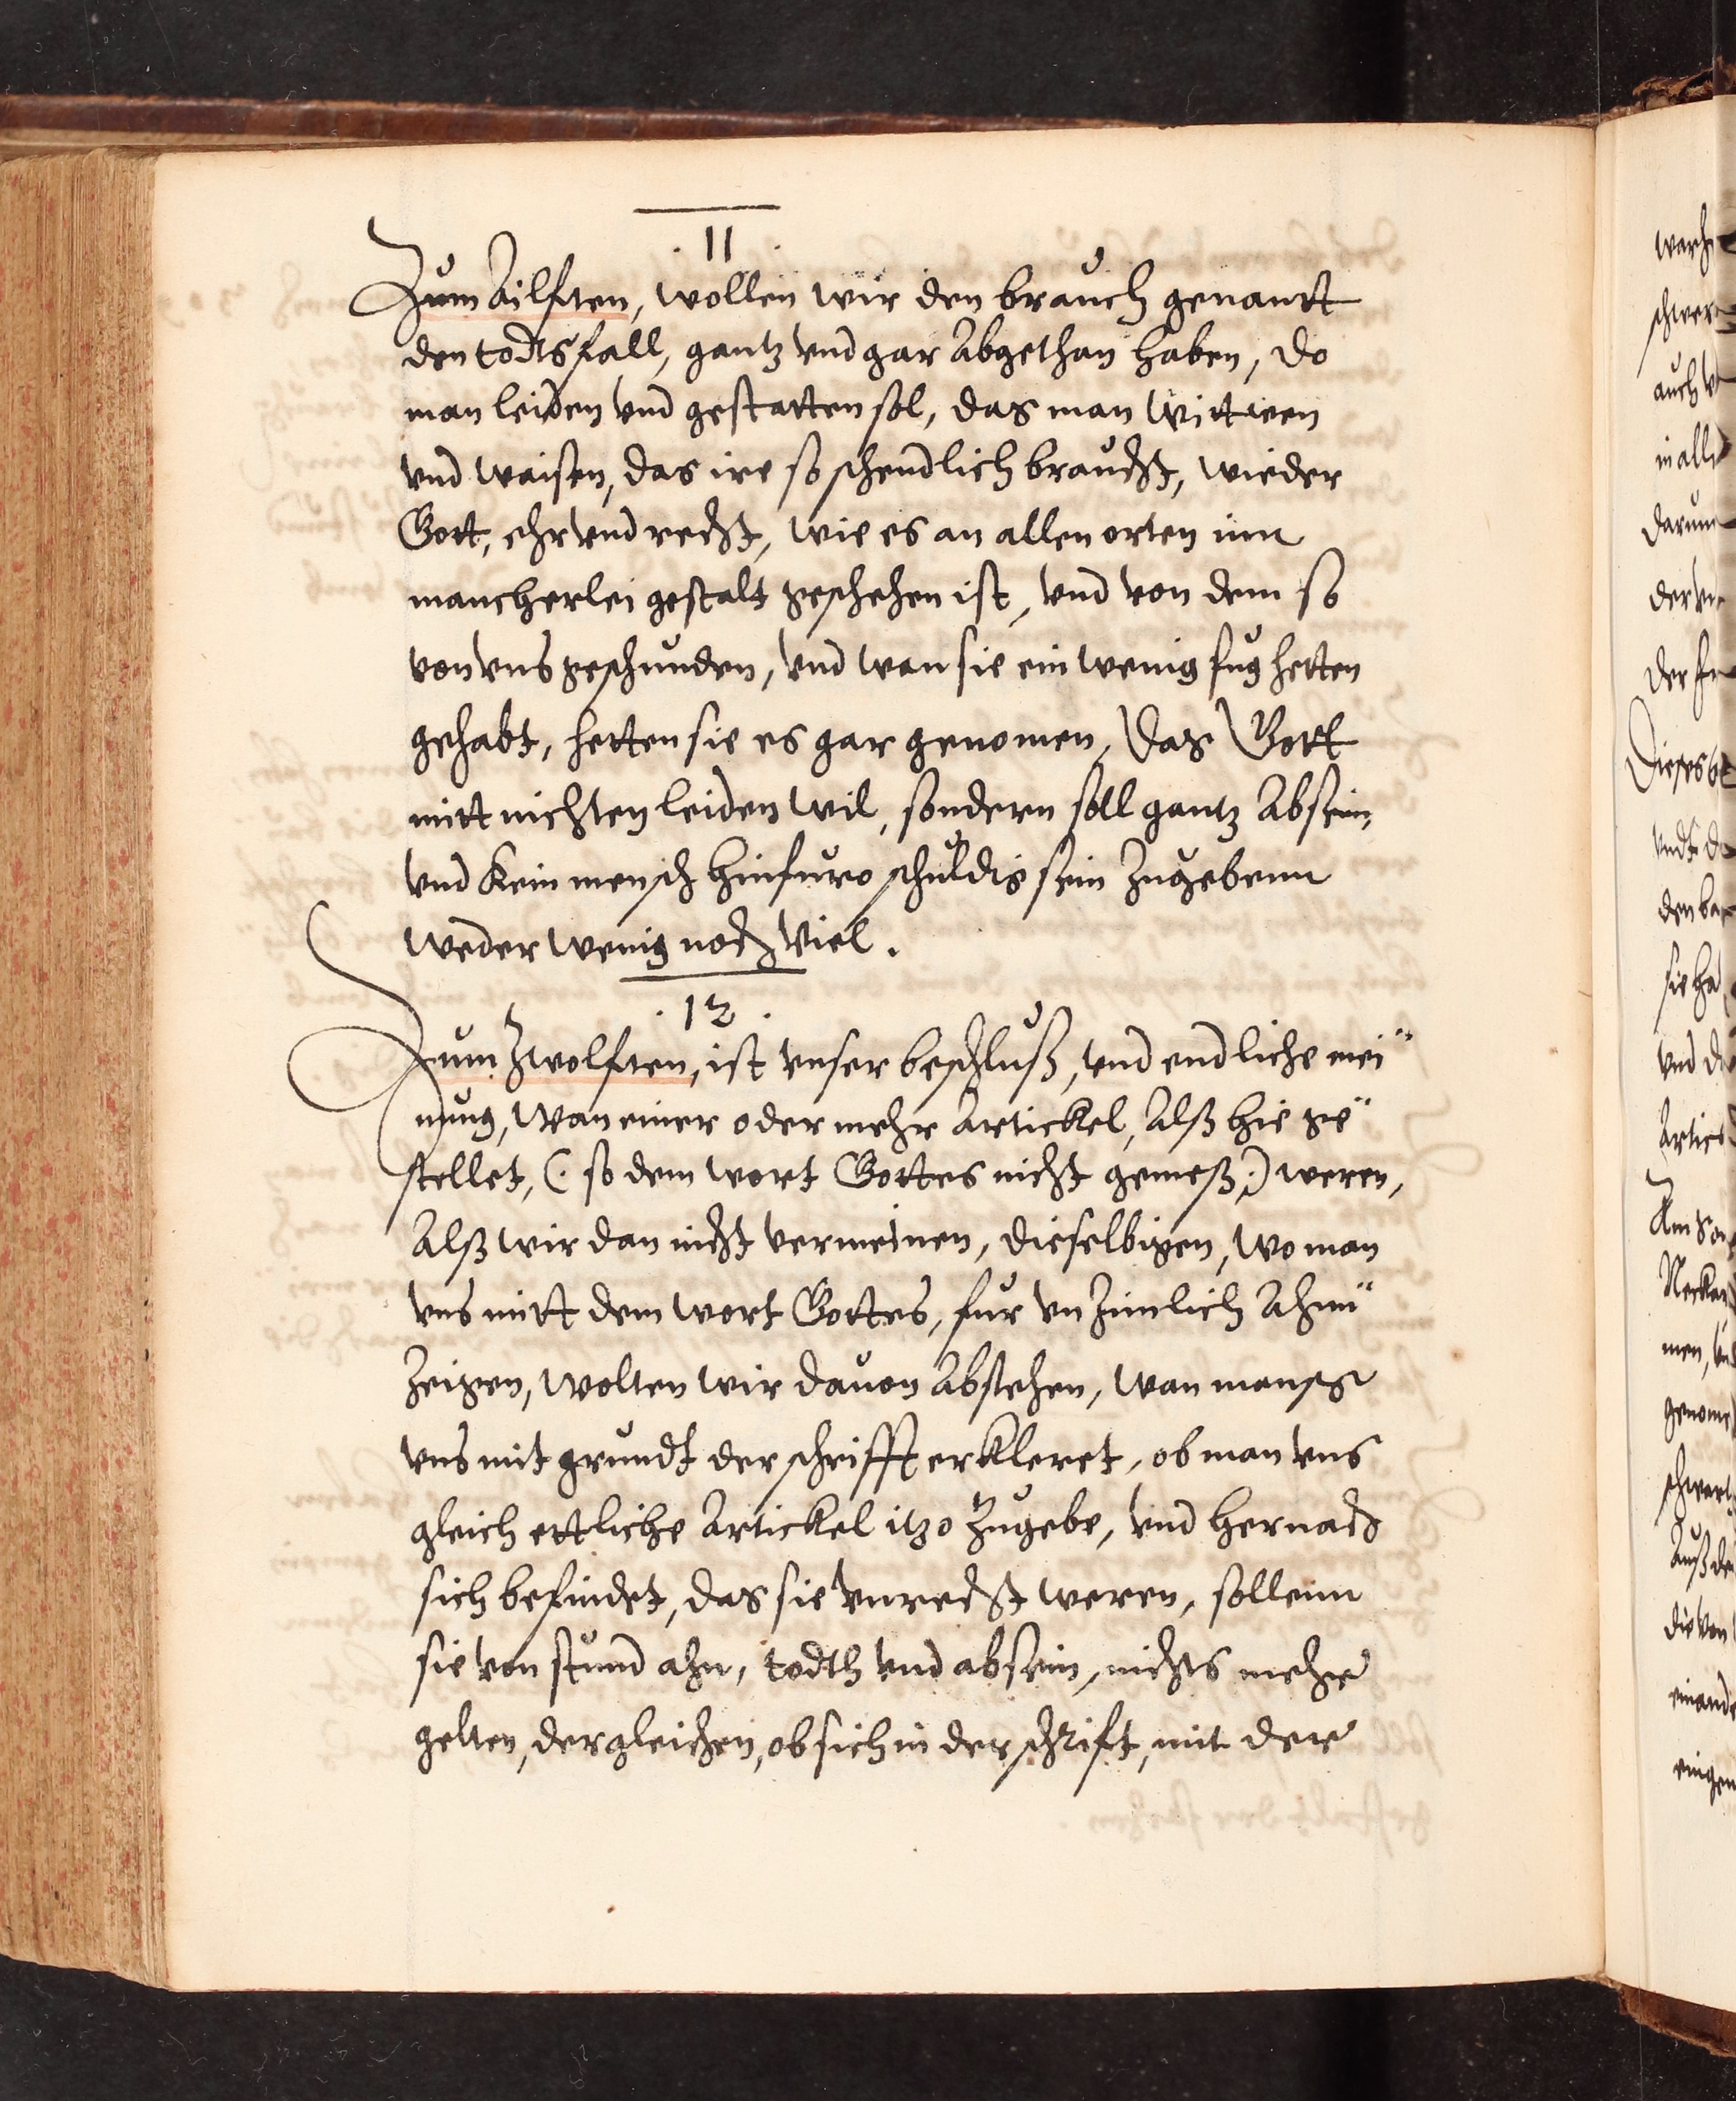 . 11 .
Zum Ailfften, wollen wir den brauch genantt
den todtsfall, gantz vnd gar Abgethan haben, do
man leiden vnd gestatten sol, das man Wittwen
vnd waisen, das ire so schendlich braucht, wieder
Gott, ehr vnd recht, wie es an allen orten inn
mancherlei gestalt geschehen ist, vnd von dem so
von vns geschunden, vnd wan sie ein wenig fug hetten
gehabt, hetten sie es gar genomen, das Gott
mitt nichten leiden wil, sondern soll gantz Absein,
vnd kein mensch hinfuro schuldig sein Zugebenn
weder wenig noch viel.
. 12 .
Zum Zwolfften, ist vnser beschluß, vnd endliche mei"
nung, Wan einer oder mehr Artickel, Alß hie ge"
stellet, (: so dem wort Gottes nicht gemeß :) weren,
Alß wir dan nicht vermeinen, dieselbigen, wo man
vns mitt dem wort Gottes, fur vnzimlich Ahnn"
Zeigen, wolten wir dauon Abstehen, wan mans
vns mit grundt der schrifft erkleret, ob man vns
gleich ettliche Artickel itzo Zugebe, vnd hernach
sich befindet, das sie vnrecht weren, sollenn
sie von stund ahn, todth vnd absein, nichts mehr
gelten, dergleichen, ob sich in der schrift, mit der